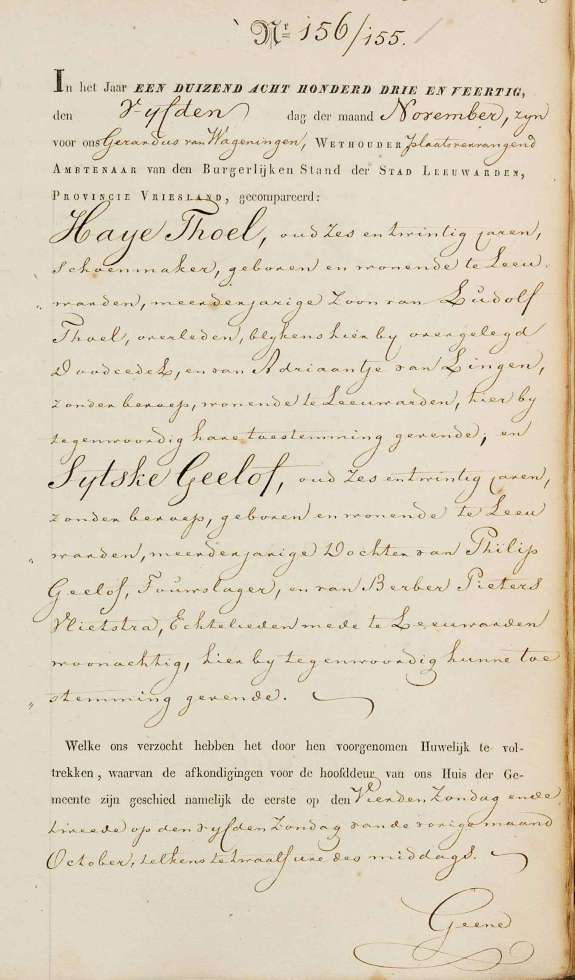 Nr. 156/155.
In het Jaar EEN DUIZEND ACHT HONDERD DRIE EN VEERTIG,
den vyfden dag der maand November, zyn
voor ons Gerardus van Wageningen, WETHOUDER plaatsvervangend
AMBTENAAR van den Burgerlijken Stand der STAD LEEUWARDEN,
PROVINCIE VRIESLAND, gecompareerd:
Haye Thoel, oud zes en twintig jaren,
schoenmaker, geboren en wonende te Leeu
„ warden, meerderjarige Zoon van Ludolf
Thoel, overleden, blykens hier by overgelegd
Doodcedel, en van Adriaantje van Lingen,
zonder beroep, wonende te Leeuwarden, hier by
tegenwoordig hare toestemming gevende; en
Sytske Geelof, oud zes en twintig jaren,
zonder beroep, geboren en wonende te Leeu
„ warden, meerderjarige Dochter van Philip
Geelof, Touwslager, en van Berber Pieters
Vlietstra, Echtelieden mede te Leeuwarden
woonachtig, hier by tegenwoordig hunne toe
„ stemming gevende.
Welke ons verzocht hebben het door hen voorgenomen Huwelijk te vol-
trekken, waarvan de afkondigingen voor de hoofddeur van ons Huis der Ge-
meente zijn geschied namelijk de eerste op den Vierden Zondag en de
tweede op den vyfden Zondag van de vorige maand
October, telkens te twaalf ure des middags.
Geene